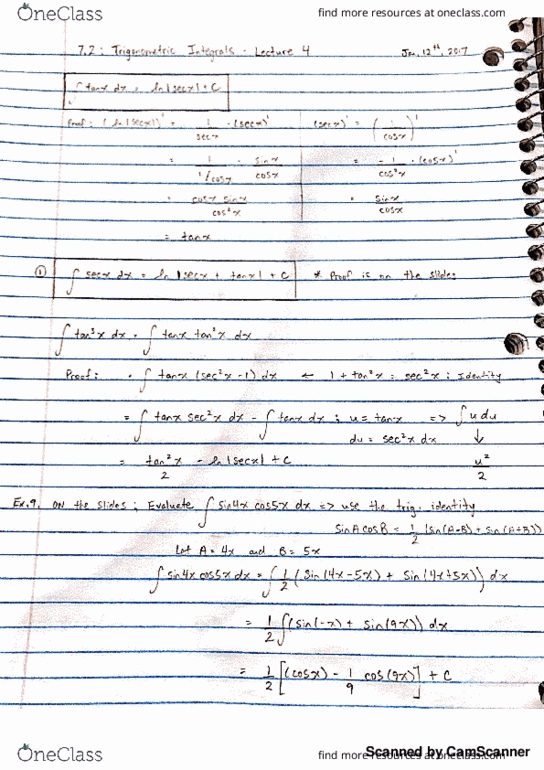 OneClass find more resources at oneclass.com
7.2: Trigonometric Integrals - Lecture 4 Jan. 12th, 2017
∫ tanx dx = ln|secx| + C
Proof: (ln|secx|)' = 1/secx · (secx)' (secx)' = (1/cosx)'
= 1/(1/cosx) · sinx/cos²x = -1/cos²x · (cosx)'
= cosx sinx/cos²x = sinx/cos²x
= tanx
① ∫ secx dx = ln|secx + tanx| + C * Proof is on the slides
∫ tan³x dx = ∫ tanx tan²x dx
Proof: = ∫ tanx (sec²x-1) dx ← 1 + tan²x = sec²x : Identity
= ∫ tanx sec²x dx - ∫ tanx dx ; u = tanx => ∫ u du
du = sec²x dx ↓
= tan²x/2 - ln|secx| + C u²/2
Ex.9. on the slides: Evaluate ∫ sin4x cos5x dx => use the trig. identity
sinA cosB = 1/2 (sin(A-B) + sin(A+B))
Let A = 4x and B = 5x
∫ sin4x cos5x dx = ∫ 1/2 (sin(4x-5x) + sin(4x+5x)) dx
= 1/2 ∫ (sin(-x) + sin(9x)) dx
= 1/2 [(cosx) - 1/9 cos(9x)] + C
OneClass find more resources at oneclass.com
Scanned by CamScanner